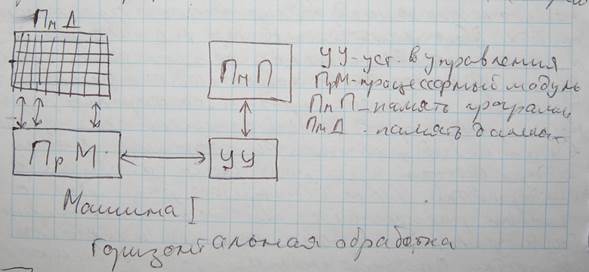 ПмД
ПмП
УУ - уст. в управления
ПрМ - процессорный модуль
ПмП - память программ
ПмД - память данных
ПрМ
УУ
Машина I
Горизонтальная обработка